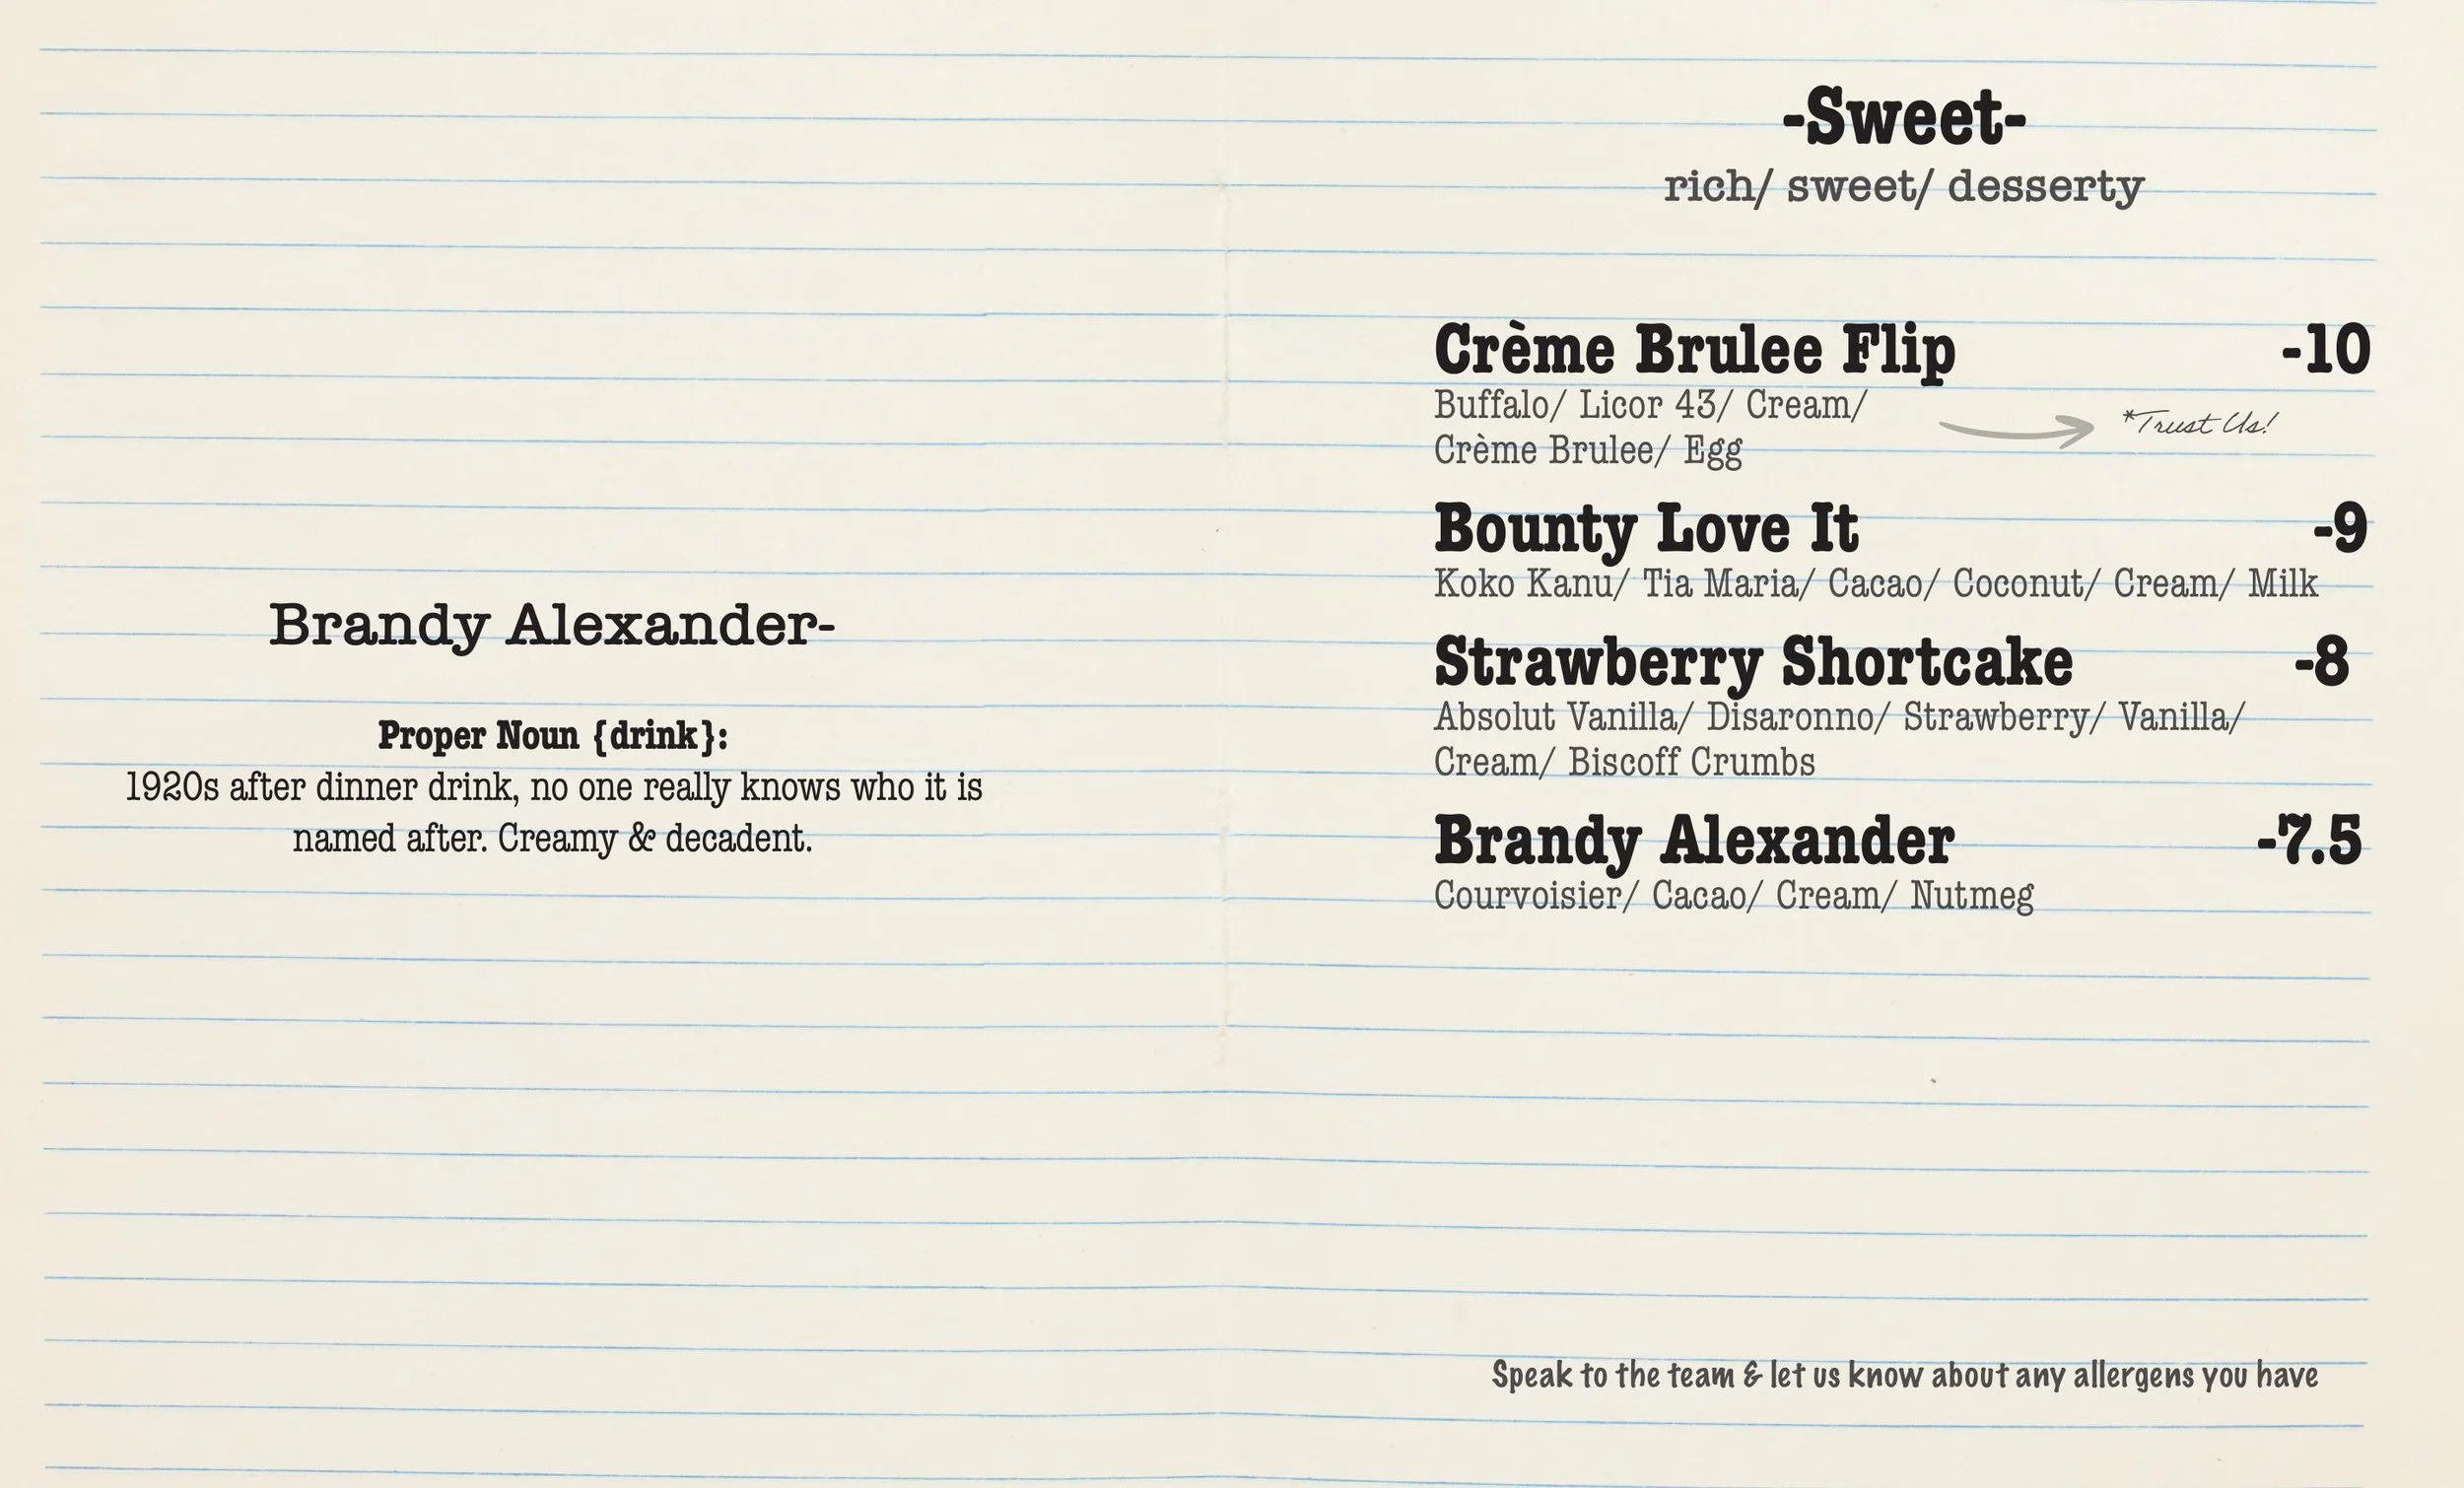 Brandy Alexander-
Proper Noun {drink}:
1920s after dinner drink, no one really knows who it is
named after. Creamy & decadent.
-Sweet-
rich/ sweet/ desserty
Crème Brulee Flip -10
Buffalo/ Licor 43/ Cream/
Crème Brulee/ Egg
*Trust Us!
Bounty Love It -9
Koko Kanu/ Tia Maria/ Cacao/ Coconut/ Cream/ Milk
Strawberry Shortcake -8
Absolut Vanilla/ Disaronno/ Strawberry/ Vanilla/
Cream/ Biscoff Crumbs
Brandy Alexander -7.5
Courvoisier/ Cacao/ Cream/ Nutmeg
Speak to the team & let us know about any allergens you have